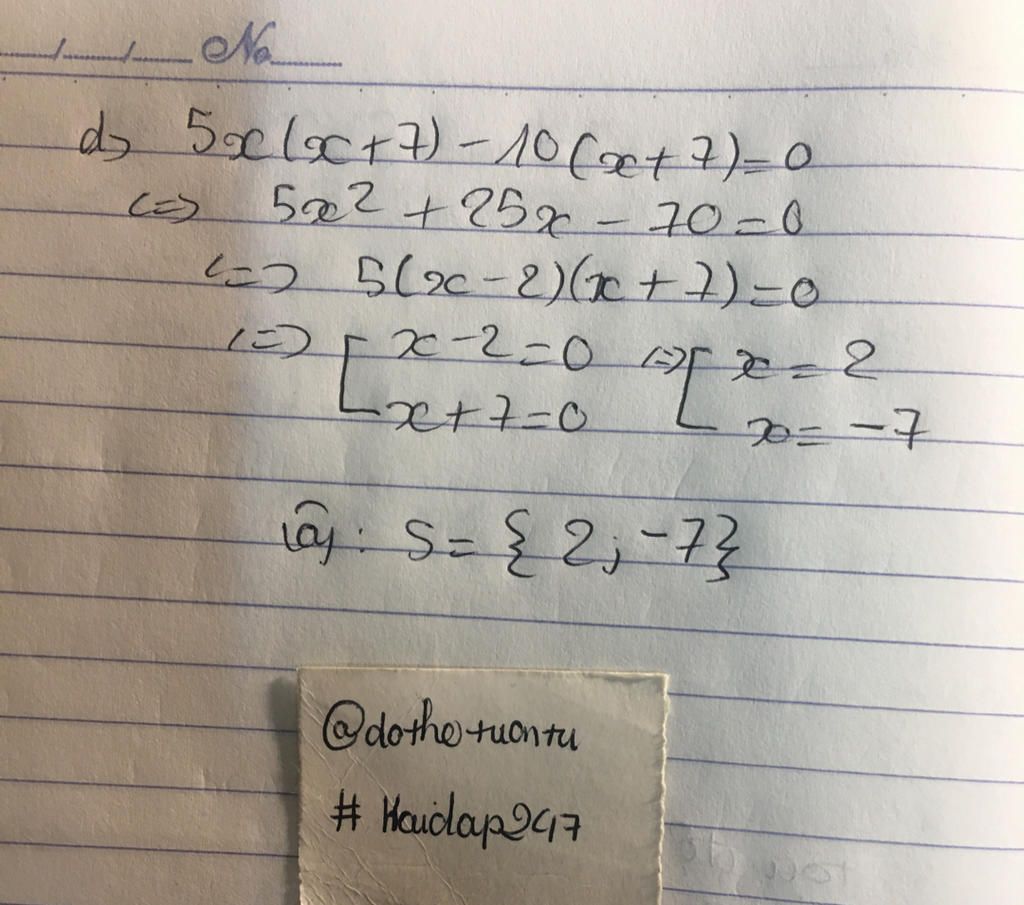 No
d) 5x(x+7)-10(x+7)=0
<=> 5x2 + 25x - 70 = 0
<=> 5(x-2)(x+7)=0
<=> [ x-2=0 <=> [ x = 2
x+7=0 x = -7
Vậy: S = { 2; -7}
@dothetuantu
# Hoidap247